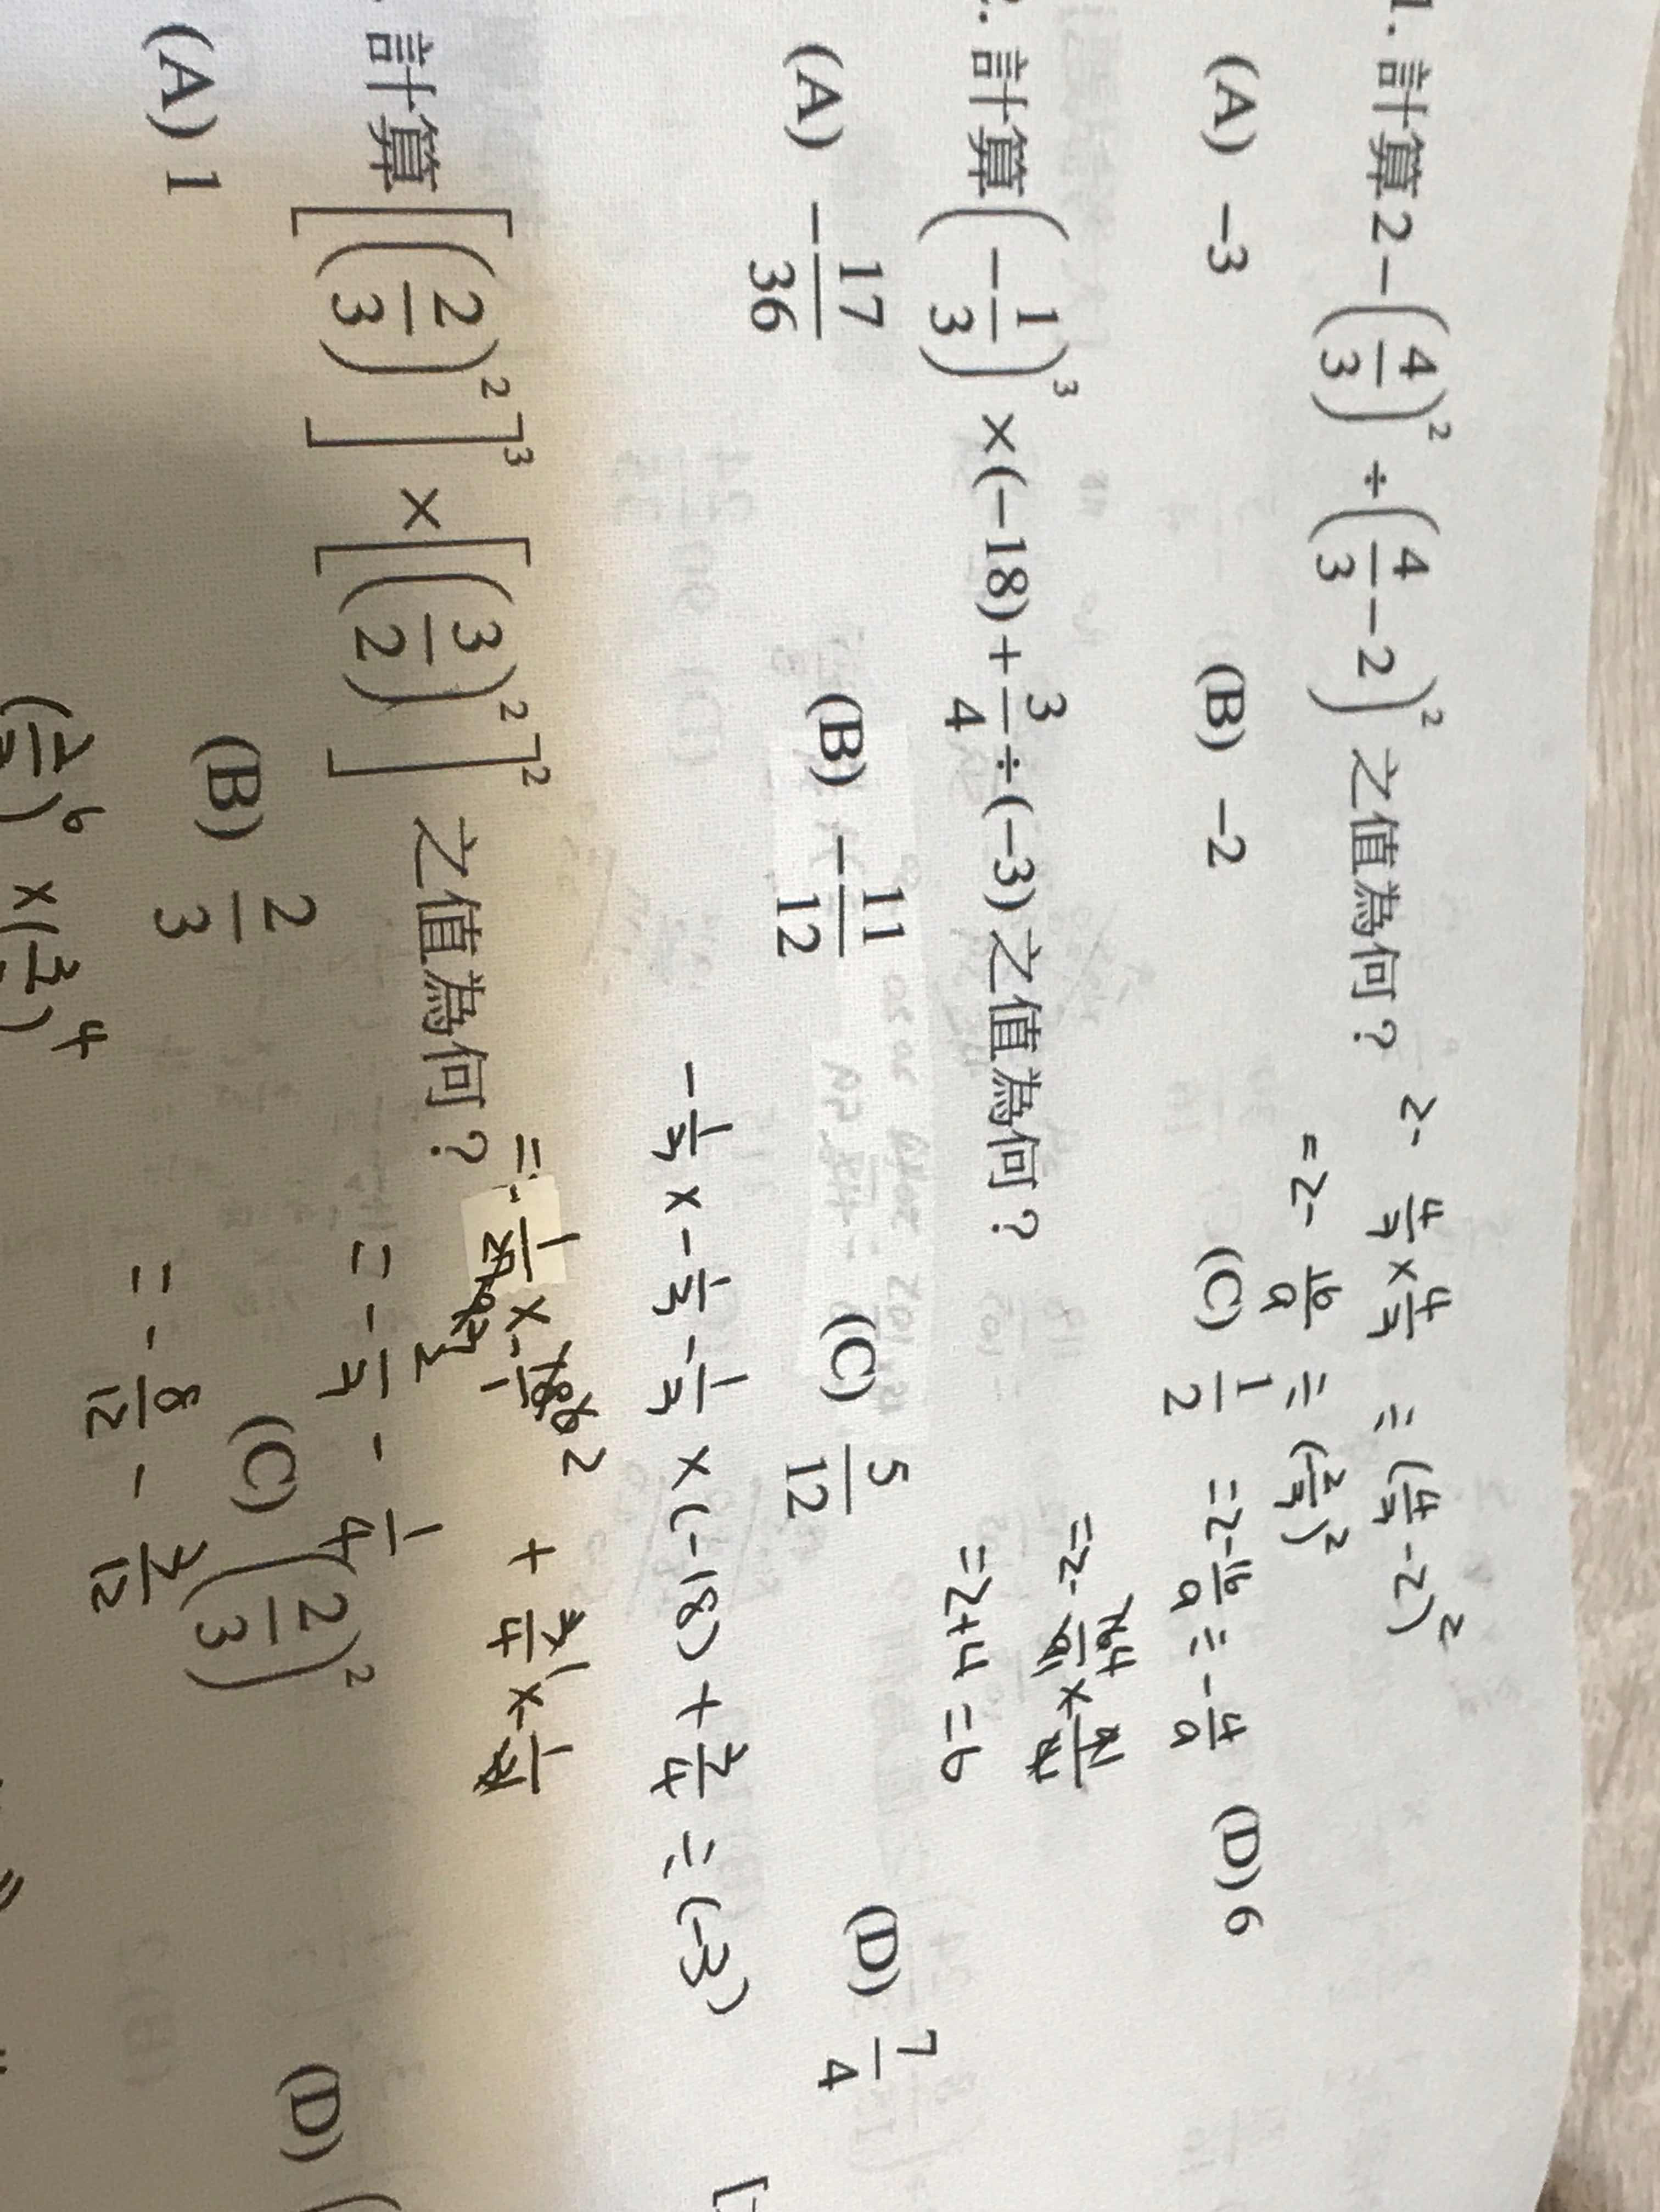 1. 計算 2 − (4/3)² ÷ (4/3 − 2)² 之值為何？
(A) −3 (B) −2 (C) 1/2 (D) 6
2 - 4/3 × 4/3 ÷ (4/3 - 2)²
= 2 - 16/9 ÷ (-2/3)²
= 2 - 16/9 ÷ -4/9
= 2 -
= 2 + 4 = 6
2. 計算 (−1/3)³ × (−18) + 3/4 ÷ (−3) 之值為何？
(A) −17/36 (B) −11/12 (C) 5/12 (D) 7/4
- 1/3 × - 1/3 - 1/3 × (-18) + 3/4 ÷ (-3)
= - 1/27 × - 18/1 + 3/4 × - 1/3
= - 2/3 - 1/4
= - 8/12 - 3/12
計算 [(2/3)²]³ × [(3/2)²]² 之值為何？
(A) 1 (B) 2/3 (C) (2/3)² (D) (
)⁶ × ( )⁴